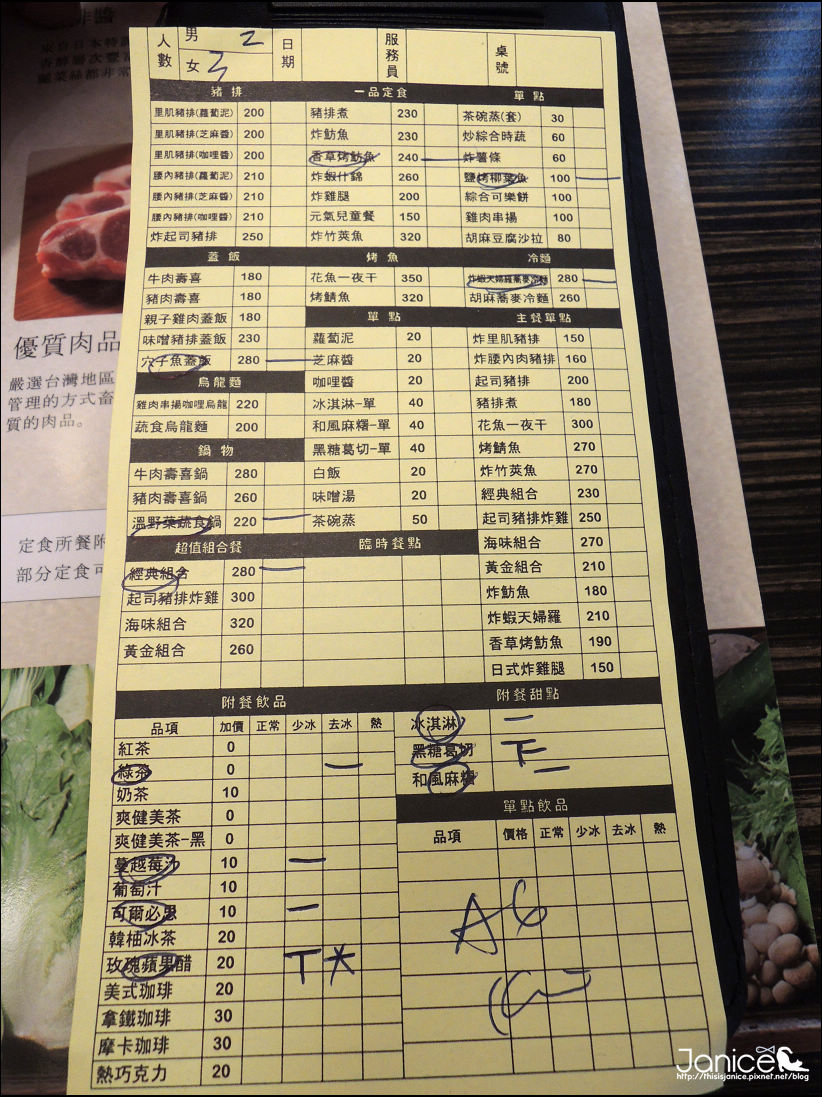 人數 男 2 女 3 日期 服務員 桌號
豬排 一品定食 單點
里肌豬排(蘿蔔泥) 200 豬排煮 230 茶碗蒸(套) 30
里肌豬排(芝麻醬) 200 炸魴魚 230 炒綜合時蔬 60
里肌豬排(咖哩醬) 200 香草烤魴魚 240 一 炸薯條 60
腰內豬排(蘿蔔泥) 210 炸蝦什錦 260 鹽烤柳葉魚 100 一
腰內豬排(芝麻醬) 210 炸雞腿 200 綜合可樂餅 100
腰內豬排(咖哩醬) 210 元氣兒童餐 150 雞肉串揚 100
炸起司豬排 250 炸竹莢魚 320 胡麻豆腐沙拉 80
蓋飯 烤魚 冷麵
牛肉壽喜 180 花魚一夜干 350 炸蝦天婦羅蕎麥冷麵 280 一
豬肉壽喜 180 烤鯖魚 320 胡麻蕎麥冷麵 260
親子雞肉蓋飯 180 單點 主餐單點
味噌豬排蓋飯 230 蘿蔔泥 20 炸里肌豬排 150
穴子魚蓋飯 280 一 芝麻醬 20 炸腰內肉豬排 160
烏龍麵 咖哩醬 20 起司豬排 200
雞肉串揚咖哩烏龍 220 冰淇淋-單 40 豬排煮 180
蔬食烏龍麵 200 和風麻糬-單 40 花魚一夜干 300
鍋物 黑糖葛切-單 40 烤鯖魚 270
牛肉壽喜鍋 280 白飯 20 炸竹莢魚 270
豬肉壽喜鍋 260 味噌湯 20 經典組合 230
溫野菜蔬食鍋 220 一 茶碗蒸 50 起司豬排炸雞 250
超值組合餐 臨時餐點 海味組合 270
經典組合 280 一 黃金組合 210
起司豬排炸雞 300 炸魴魚 180
海味組合 320 炸蝦天婦羅 210
黃金組合 260 香草烤魴魚 190
日式炸雞腿 150
附餐飲品 附餐甜點
品項 加價 正常 少冰 去冰 熱
紅茶 0
綠茶 0 一
奶茶 10
爽健美茶 0
爽健美茶-黑 0
蔓越莓汁 10 一
葡萄汁 10
可爾必思 10 一
韓柚冰茶 20
玫瑰蘋果醋 20
美式珈琲 20
拿鐵珈琲 30
摩卡珈琲 30
熱巧克力 20
冰淇淋 一
黑糖葛切 下
和風麻糬 一
單點飲品
品項 價格 正常 少冰 去冰 熱
A6
優質肉品
嚴選台灣地區
管理的方式畜
質的肉品。
定食所餐附
部分定食可
Janice
http://thisisjanice.pixnet.net/blog